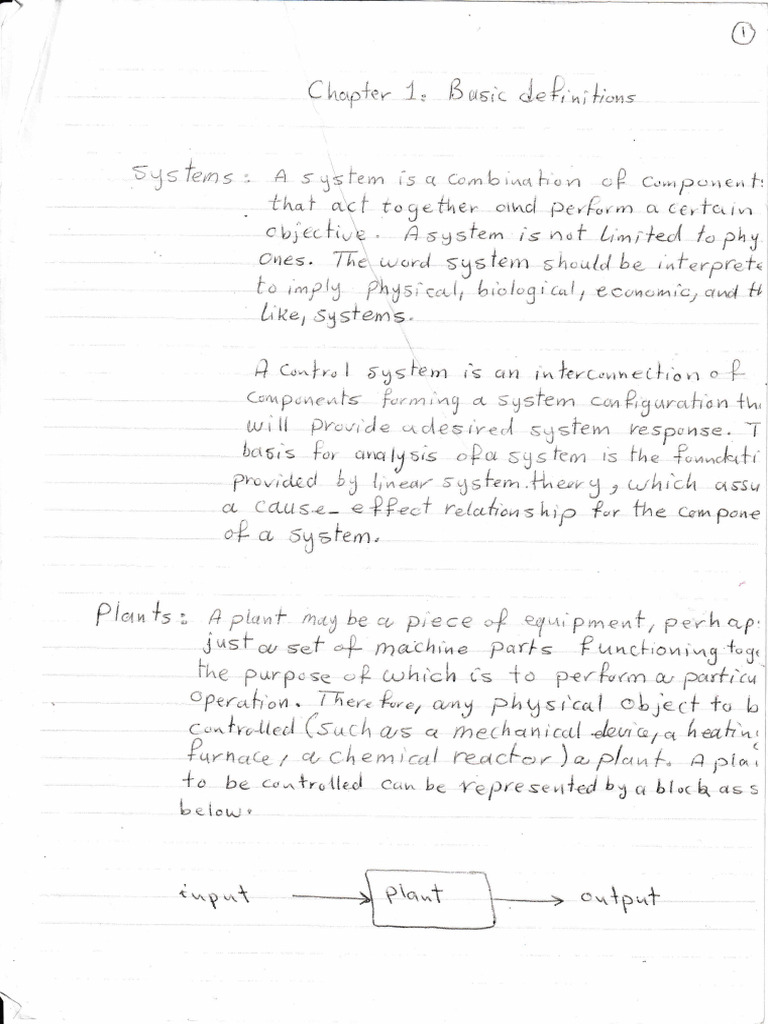 1
Chapter 1: Basic definitions
Systems: A system is a combination of component
that act together and perform a certain
objective. A system is not limited to phy
ones. The word system should be interprete
to imply physical, biological, economic, and th
like, systems.
A control system is an interconnection of
components forming a system configuration tha
will provide a desired system response. T
basis for analysis of a system is the foundati
provided by linear system theory, which assu
a cause-effect relationship for the compone
of a system.
Plants: A plant may be a piece of equipment, perhap
just a set of machine parts functioning toge
the purpose of which is to perform a particu
operation. Therefore, any physical object to b
controlled (such as a mechanical device, a heatin
furnace, a chemical reactor) a plant. A plan
to be controlled can be represented by a block as s
below.
input plant output